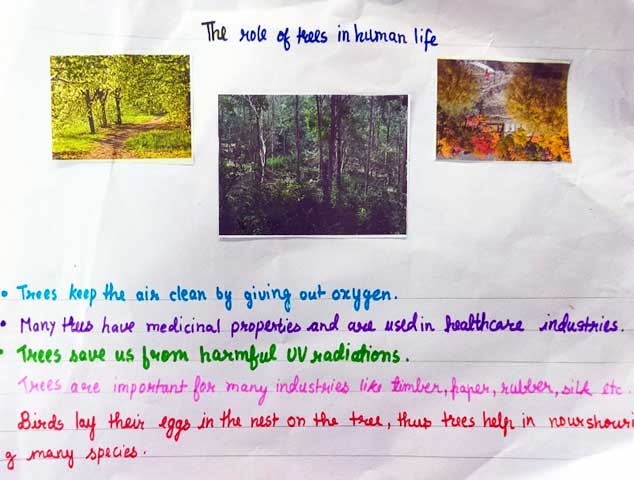 The role of trees in human life
• Trees keep the air clean by giving out oxygen.
• Many trees have medicinal properties and are used in healthcare industries.
• Trees save us from harmful UV radiations.
Trees are important for many industries like timber, paper, rubber, silk etc.
Birds lay their eggs in the nest on the tree, thus trees help in nourshouri
g many species.